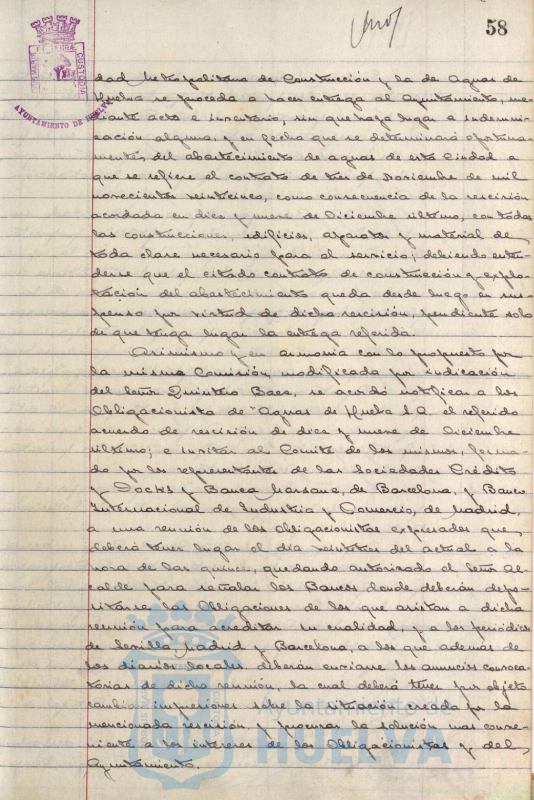 58
AYUNTAMIENTO DE HUELVA
CUSTODIA
dad Metropolitana de Construcción y la de Aguas de
Huelva se proceda a hacer entrega al Ayuntamiento, me-
diante acta e inventario, sin que haya lugar a indemni-
zación alguna, y en fecha que se determinará oportuna-
mente, del abastecimiento de aguas de esta Ciudad a
que se refiere el contrato de tres de Noviembre de mil
novecientos veinticinco, como consecuencia de la rescisión
acordada en diez y nueve de Diciembre último, con todas
las construcciones, edificios, aparatos y material de
toda clase necesario para al servicio; debiendo enten-
derse que el citado contrato de construcción y explo-
tación del abastecimiento queda desde luego en sus-
penso por virtud de dicha rescisión, pendiente solo
de que tenga lugar la entrega referida.
Asimismo y en armonia con lo propuesto por
la misma Comisión, modificada por indicación
del Señor Quintero Baez, se acordó notificar a los
Obligacionista de "Aguas de Huelva S.A. el referido
acuerdo de rescisión de diez y nueve de Diciembre
último; e invitar al Comité de los mismos, forma-
do por los representantes de las Sociedades Crédito
y Docks y Banca Marsans, de Barcelona, y Banco
Internacional de Industria y Comercio, de Madrid,
a una reunión de los Obligacionistas expresados que
deberá tener lugar el día veintitres del actual a la
hora de las quince, quedando autorizado el Señor Al-
calde para señalar los Bancos donde deberán depo-
sitarse las Obligaciones de los que asistan a dicha
reunión para acreditar su cualidad, y a los periódicos
de Sevilla Madrid y Barcelona, a los que además de
los diarios locales deberán enviarse los anuncios convoca-
torias de dicha reunión, la cual deberá tener por objeto
cambiar impresiones sobre la situación creada por la
mencionada rescisión y procurar la solución mas conve-
niente a los intereses de los Obligacionistas y del
Ayuntamiento.
Ayuntamiento de
HUELVA